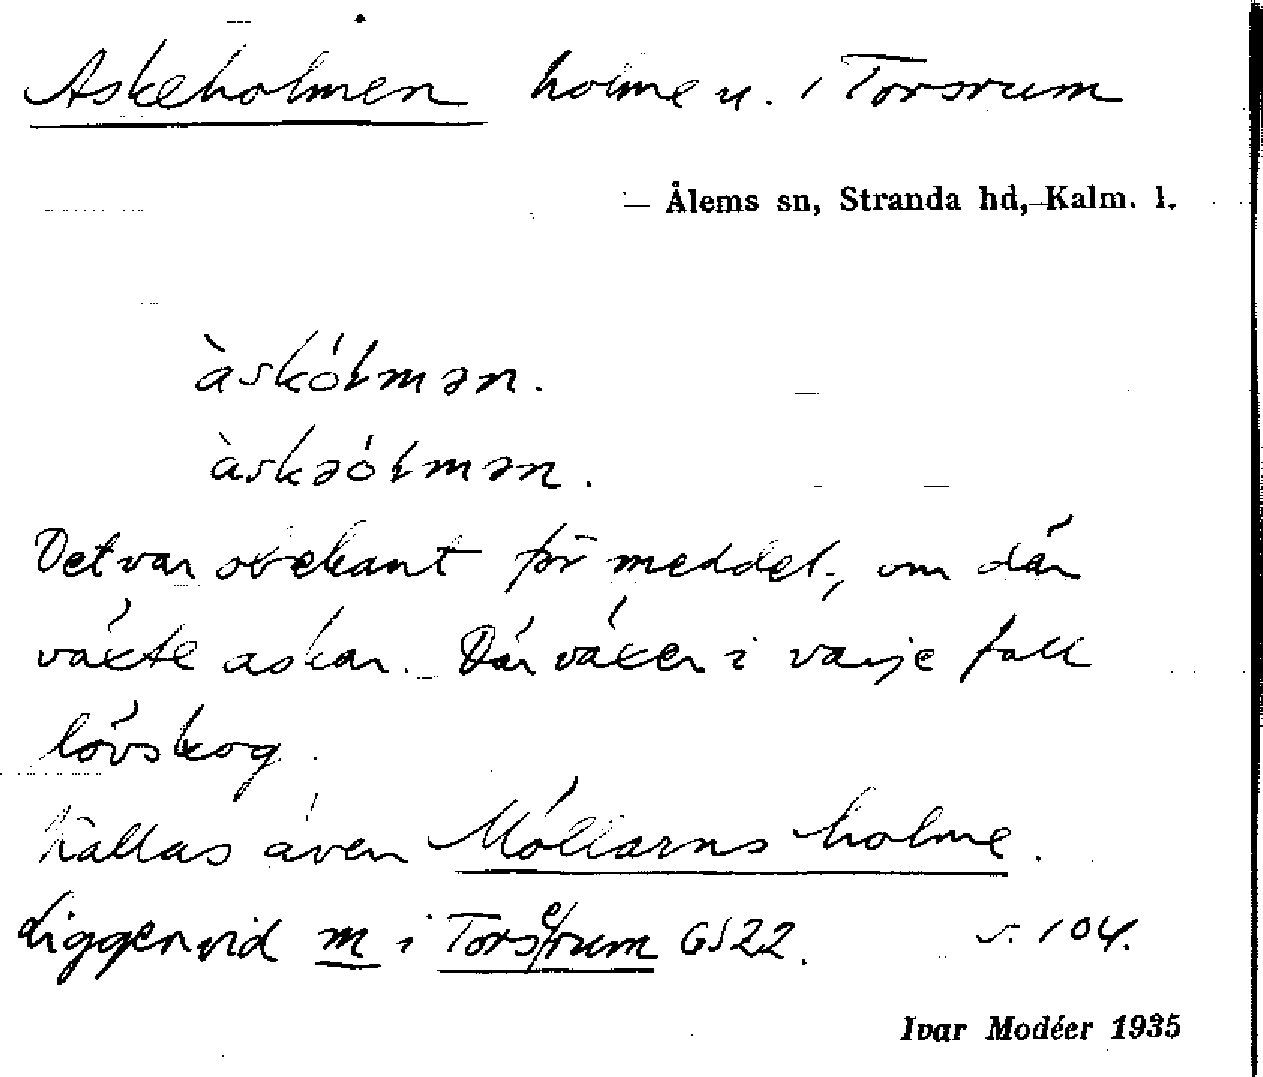 Askeholmen holme u. i Torsrum
Ålems sn, Stranda hd, Kalm. l.
àskóɫmən.
àskəóɫmən.
Det var obekant för meddel., om där
växte askar. Där växer i varje fall
lövskog.
Kallas även Möllarns holme.
Ligger vid m i Torserum GS22. s. 104.
Ivar Modéer 1935